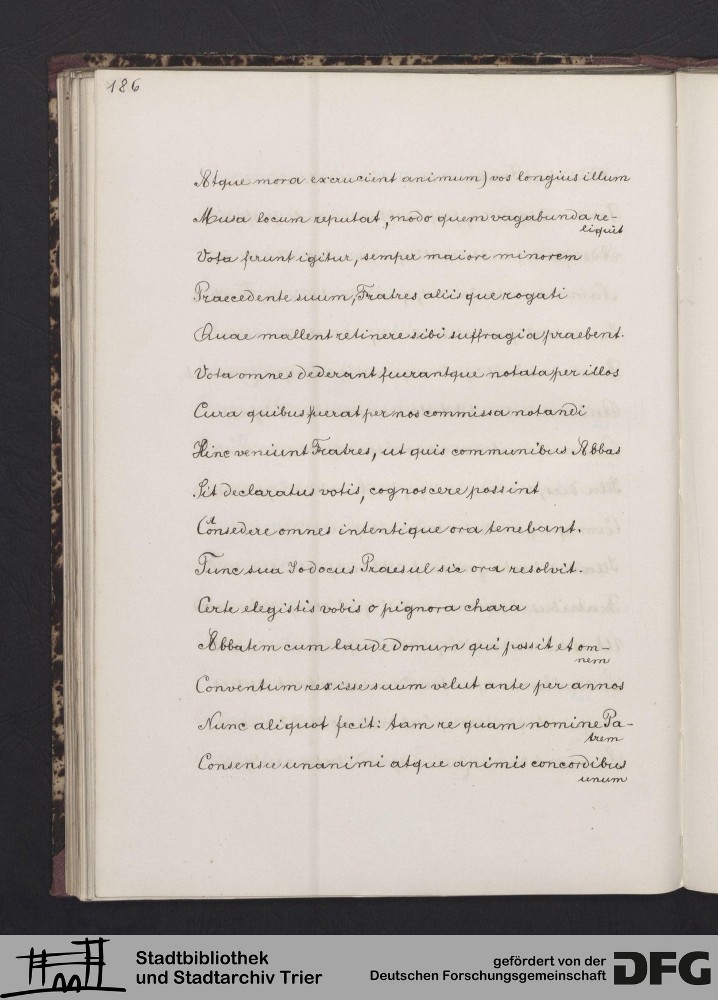 186
Atque mora excrucient animum) vos longius illum
Musa locum reputat, modo quem vagabunda re-
liquit
Vota ferunt igitur, semper maiore minorem
Praecedente suum, Fratres aliisque rogati
Quae mallent retinere sibi suffragia praebent.
Vota omnes dederant fuerantque notata per illos
Cura quibus fuerat per nos commissa notandi
Hinc veniunt Fratres, ut quis communibus Abbas
Sit declaratus votis, cognoscere possint
Consedere omnes intentique ora tenebant.
Tunc sua Iodocus Praesul sic ora resolvit.
Certe elegistis vobis o pignora chara
Abbatem cum laude domum qui possit et om-
nem
Conventum rexisse suum velut ante per annos
Nunc aliquot fecit: tam re quam nomine Pa-
trem
Consensu unanimi atque animis concordibus
unum
Stadtbibliothek
und Stadtarchiv Trier
gefördert von der
Deutschen Forschungsgemeinschaft
DFG